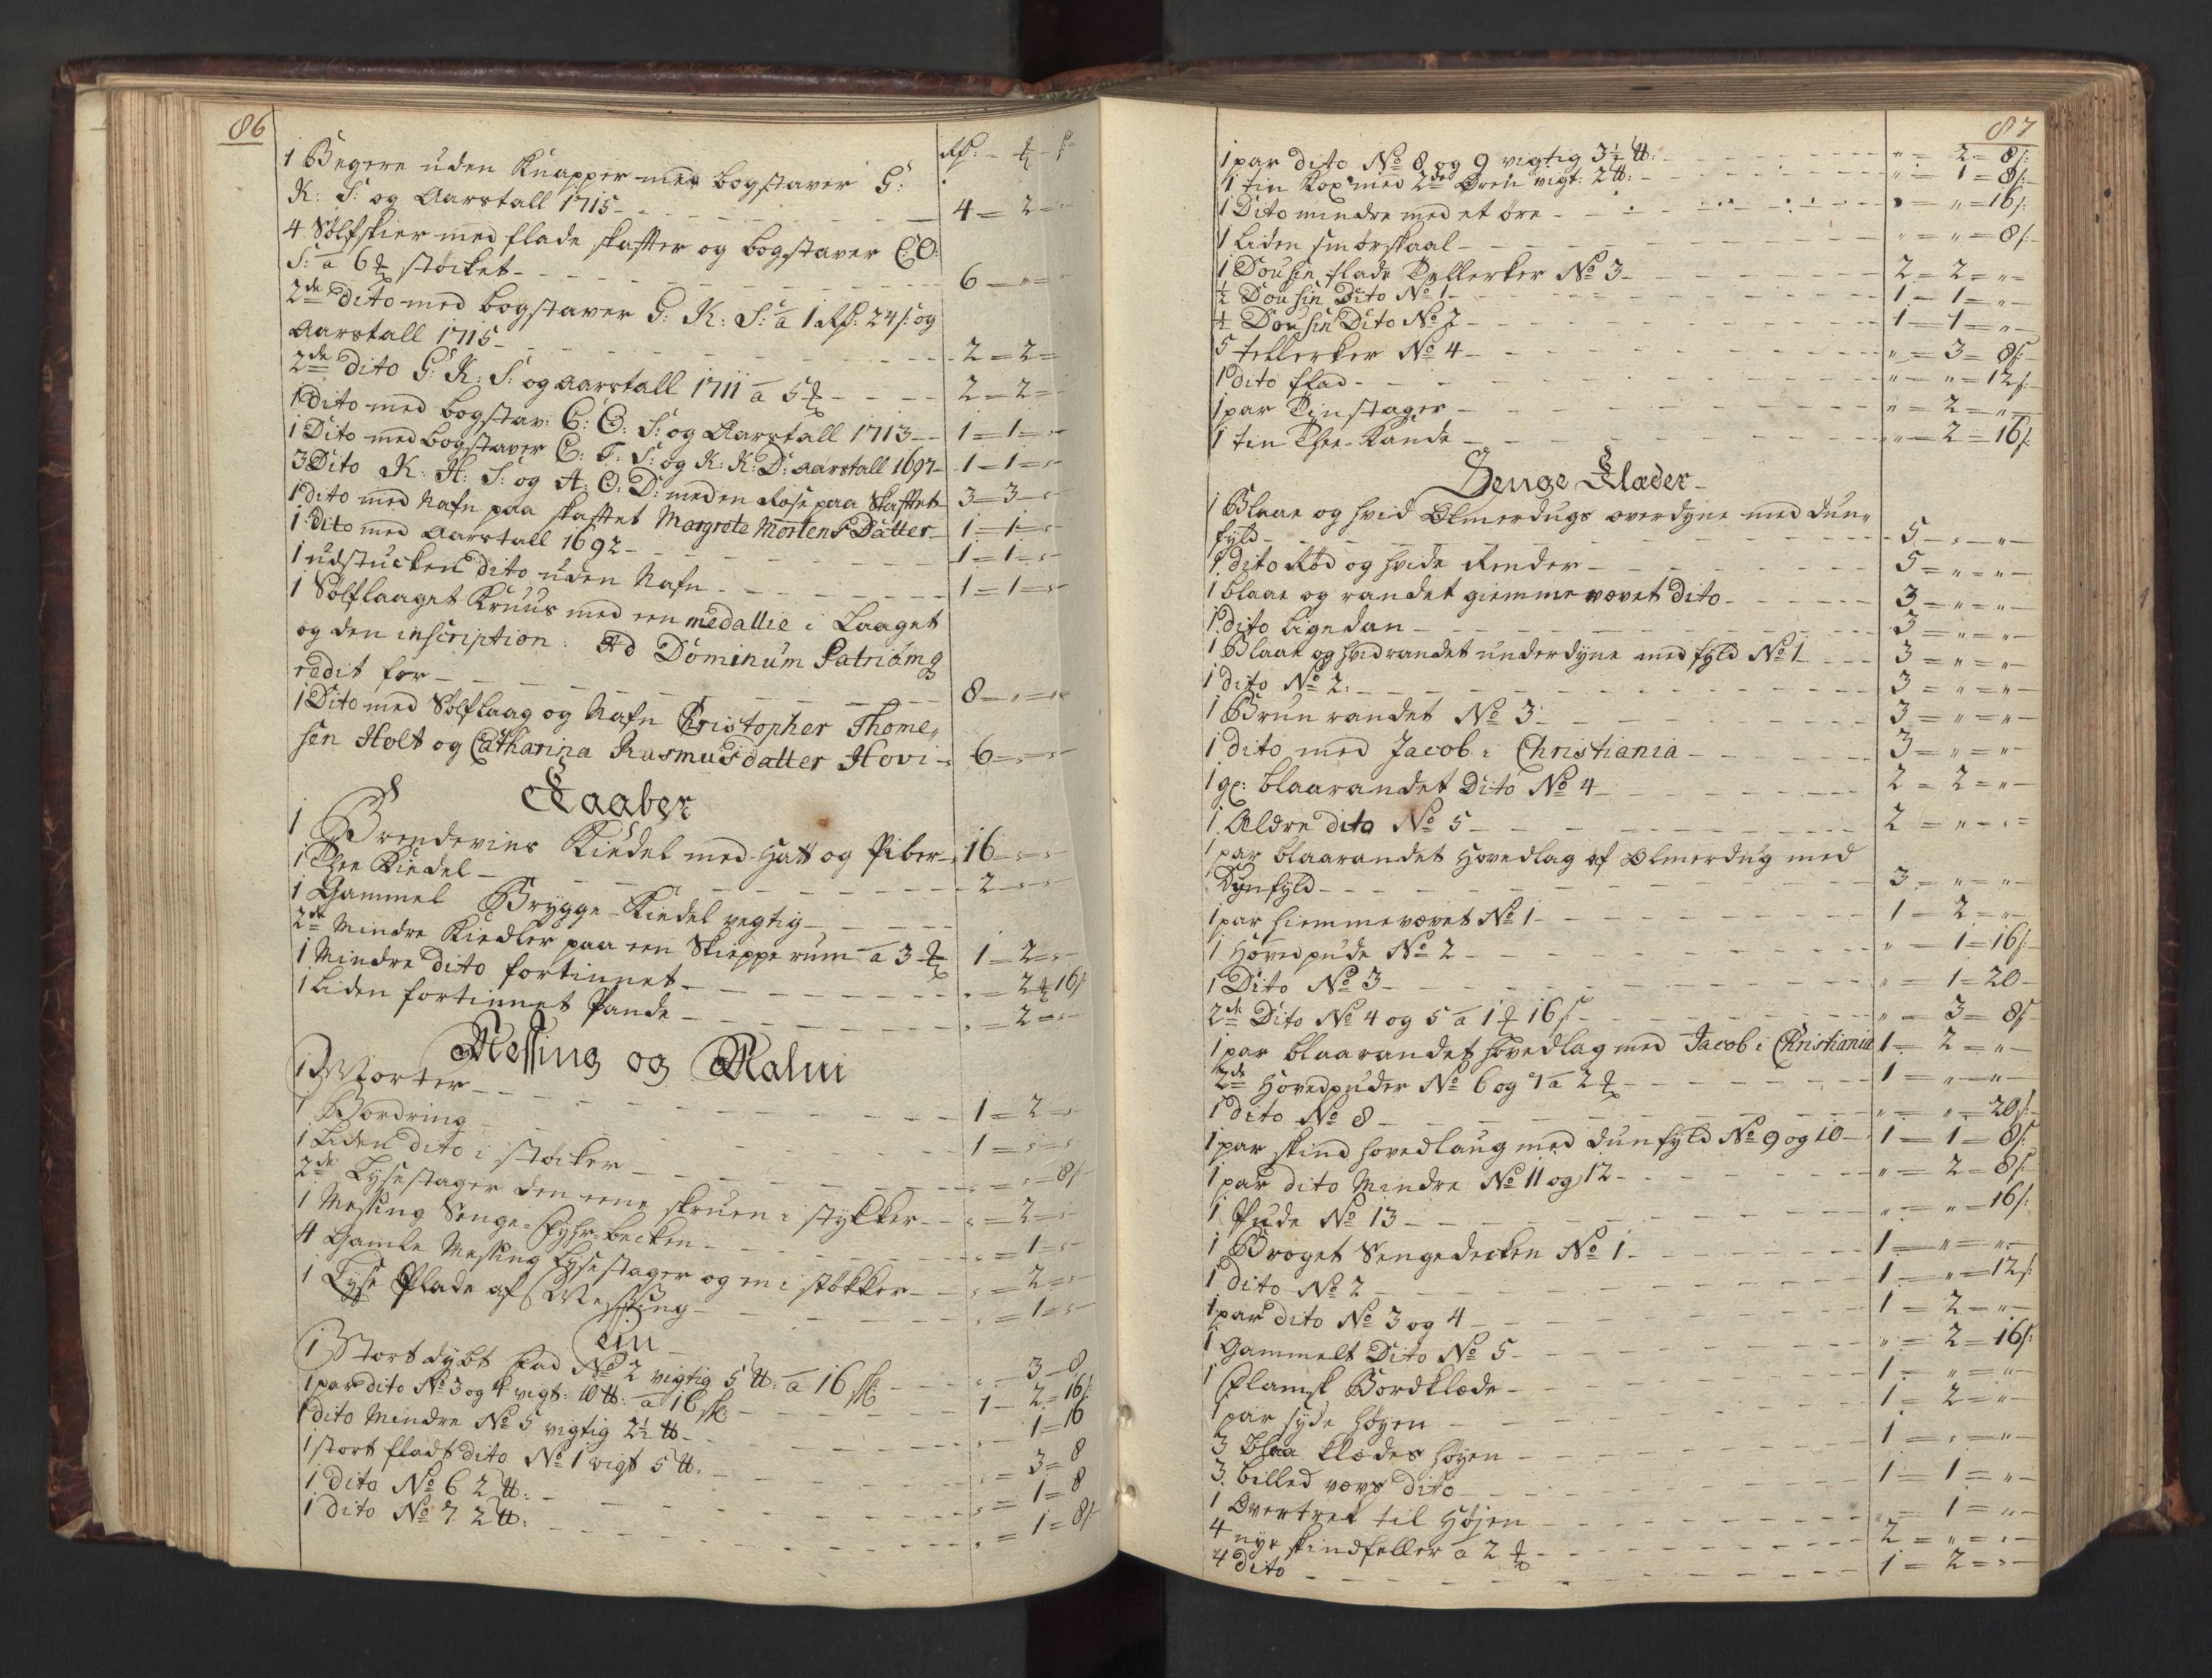 86
Rd: - ƶ - s
1 Begere uden Knapper med bogstaver G:
K: S: og Aarstall 1715 - - - 4 = 2 = -
4 Sølfskier med flade skaffter og bogstaver C: O:
S: a 6 ƶ støcket - - - 6 = " = "
2de dito med bogstaver G: K: S: a 1 Rd: 24 s: og
Aarstall 1715 - - - 2 = 2 =
2de dito G: K: S: og aarstall 1711 a 5 ƶ - - - 2 = 2 = -
1 dito med bogstav: C: O: S: og Aarstall 1713 - - 1 = 1 = -
1 Dito med bogstaver C: T: S: og K: K: D: aarstall 1697 - 1 = 1 = -
3 Dito K: H: S: og A: O: D: med en Rose paa Skafftet 3 = 3 - -
1 dito med Nafn paa skafftet Margrete Mortens Datter - 1 = 1 = -
1 dito med Aarstall 1692 - - - 1 = 1 = -
1 udstucken dito uden Nafn - - - 1 = 1 = -
1 Sølflaaget Kruus med en medallie i Laaget
og den inscription: Ad Dominum Patriamq
redit for - - - 8 = " = "
1 Dito med Sølflaag og Nafn Christopher Thome„
sen Holt og Catharina Rasmusdatter Hovi - 6 = " = -
Kaaber
1 Brendevins Kiedel med Hatt og Piber - 16 - " -
1 Thee Kiedel - - - 2 - " -
1 Gammel Brygge-Kiedel vegtig - - -
2de Mindre Kiedler paa een Skieppe rum a 3 ƶ 1 = 2 = -
1 Mindre dito fortinnet - - - " = 2 ƶ 16 s
1 Liden fortinnet Pande - - - " = 2 = -
Messing og Malm
1 Morter - - - 1 = 2 = -
1 Bordring - - - 1 = " = "
1 Liden dito i støcker - - - " = " = 8 s
2de Lysestager den eene skruen i stykker - - " = 2 = -
1 Messing Senge-Fyhr-becken - - - " = 1 = -
4 Gamle Messing Lysestager og en i støkker - - " = 2 = -
1 Lyse Plade af Messing - - - " = 1 = -
Tin
1 Stort dybt Fad No 2 vigtig 5 ℔: a 16 sk: - - " 3 = 8
1 par dito No 3 og 4 vigt: 10 ℔: a 16 sk: - - 1 - 2 = 16 s:
1 dito Mindre No 5 vigtig 2½ ℔ - - - " 1 = 16
1 stort fladt dito No 1 vigt 5 ℔. - - - " = 3 = 8
1 dito No 6 2 ℔: - - - " = 1 = 8
1 dito No 7 2 ℔: - - - " = 1 = 8 s
87
1 par dito No 8 og 9 vigtig 3½ ℔: - - - " = 2 = 8 s:
1 tin Kop med 2de Øren vigt: 2 ℔: - - - " = 1 = 8 s
1 Dito mindre med et øre - - - " = " = 16 s:
1 Liden smørskaal - - - " = " = 8 s
1 Dousin flade Tellerker No 3 - - - 2 = 2 = " -
½ Dousin Dito No 1 - - - 1 = 1 = " -
½ Dousin Dito No 2 - - - 1 = 1 = " -
5 tellerker No 4 - - - " = 3 = 8 s
1 dito flad - - - " = " = 12 s
1 par Tinstager - - - " = 2 = "
1 tin Thee-Kande - - - " = 2 = 16 s
Senge Klæder
1 Blaae og hvid Olmerdugs overdyne med dun„
fyld - - - 5 - " - " -
1 dito Rød og hvide Render - - - 5 = " = " -
1 blaae og randet giemmevævet dito - - - 3 = " = " -
1 dito ligedan - - - 3 = " = " -
1 Blaae og hvid randet underdyne med fyld No 1 - - 3 = " = " -
1 dito No 2: - - - 3 = " = " -
1 Brun randet No 3 - - - 3 = " = " -
1 dito med Jacob i Christiania - - - 3 = " = " -
1 gl: blaarandet Dito No 4 - - - 2 = 2 = " -
1 Ældre dito No 5 - - - 2 = " = " =
1 par blaarandet Hovedlag af Olmerdug med
Dynfyld - - - 3 = " = " -
1 par hiemmevævet No 1 - - - 1 = 2 = " -
1 Hovedpude No 2 - - - " = 1 = 16 s
1 Dito No 3 - - - " = 1 = 20 -
2de Dito No 4 og 5 a 1 ƶ 16 s - - - " = 3 = 8 s
1 par blaarandet hovedlag med Jacob i Christiania 1 = 2 = " -
2de Hovedpuder No 6 og 7 a 2 ƶ - - - 1 = " = " -
1 dito No 8 - - - " = " = 20 s:
1 par skind hovedlaug med dunfyld No 9 og 10 - 1 = 1 = 8 s:
1 par dito Mindre No 11 og 12 - - - " = 2 = 8 s:
1 Pude No 13 - - - " = " = 16 s:
1 Broget Sengedecken No 1 - - - 1 = " = " -
1 dito No 2 - - - 1 = " = 12 s:
1 par dito No 3 og 4 - - - 1 = 2 = " -
1 Gammelt Dito No 5 - - - " = 2 = 16 s:
1 Flamsk Bordklæde - - - 1 = " = " -
1 par syde høyen - - - 1 = 2 = " -
3 blaa klædes høyen - - - 1 = " = " -
3 billed vævs dito - - - 1 = 1 = " -
1 Overtræk til Høyen - - - " = 1 = " -
4 nye skindfeller a 2 ƶ - - - 2 = " = " -
4 dito - - - 1 = 2 = " -